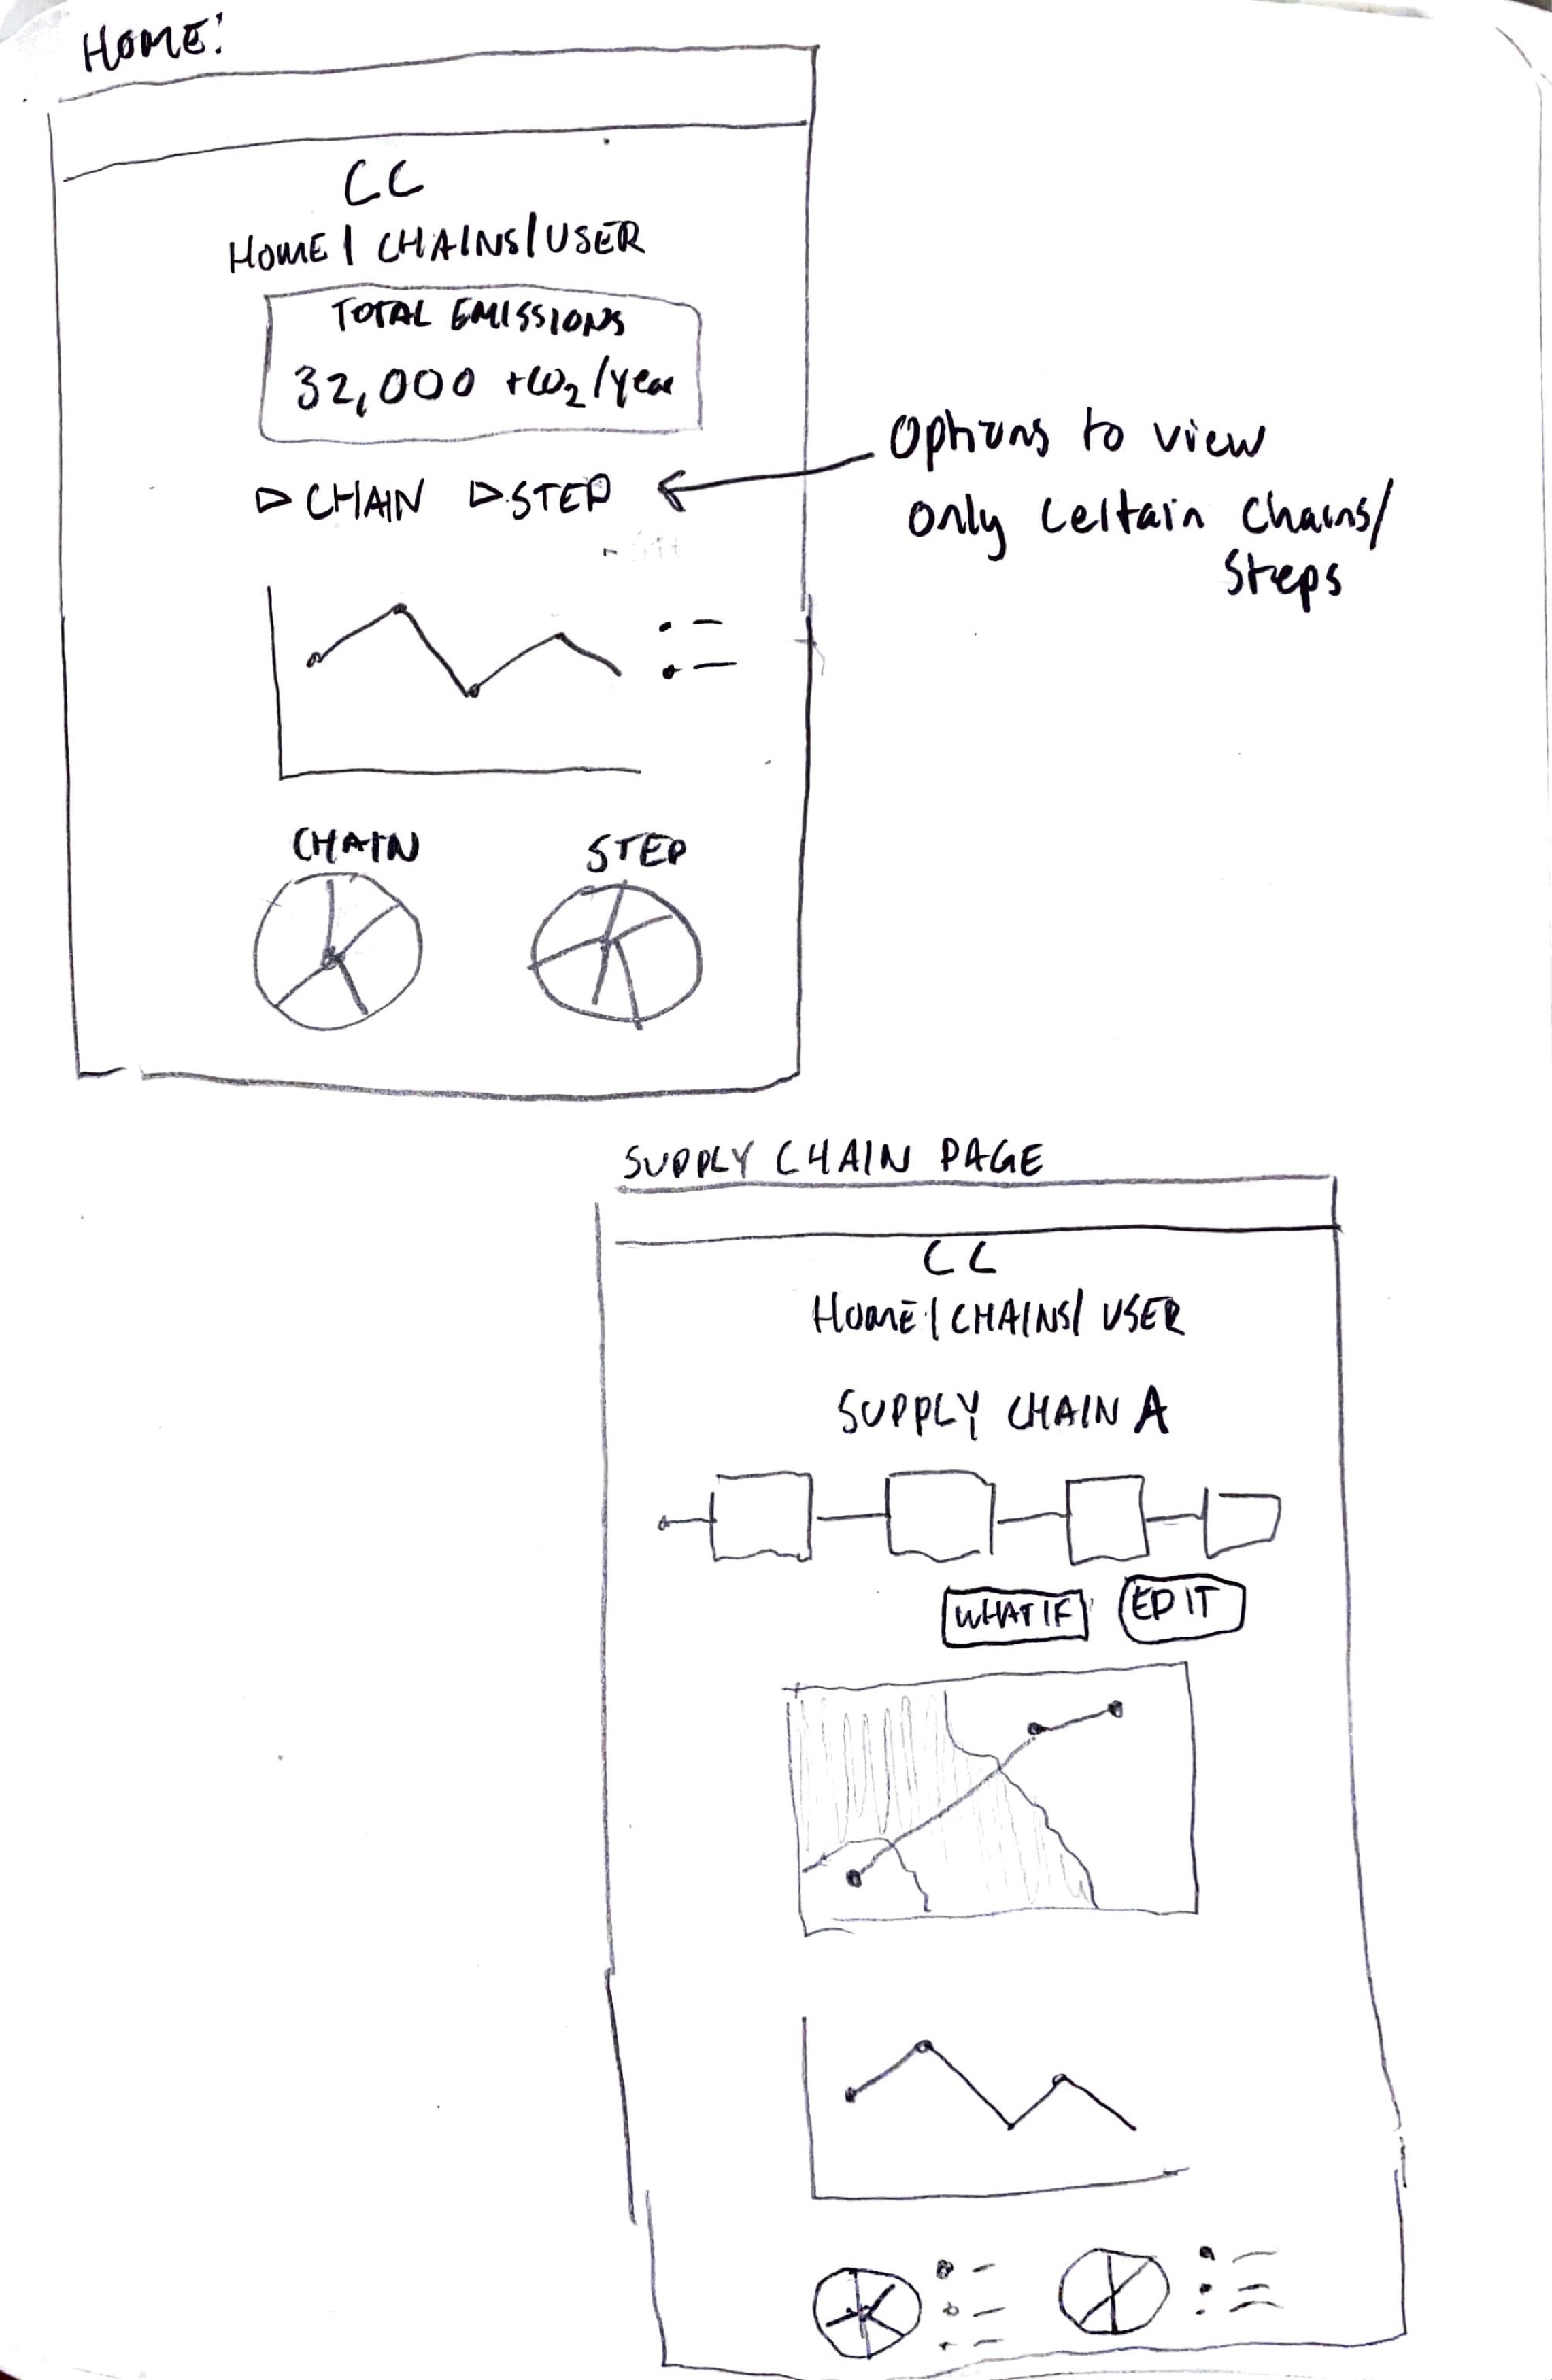 HOME:
CC
HOME | CHAINS/USER
TOTAL EMISSIONS
32,000 tCO2/year
▷ CHAIN ▷ STEP
Options to view
only certain chains/
steps
CHAIN STEP
SUPPLY CHAIN PAGE
CC
HOME | CHAINS/ USER
SUPPLY CHAIN A
WHAT IF EDIT